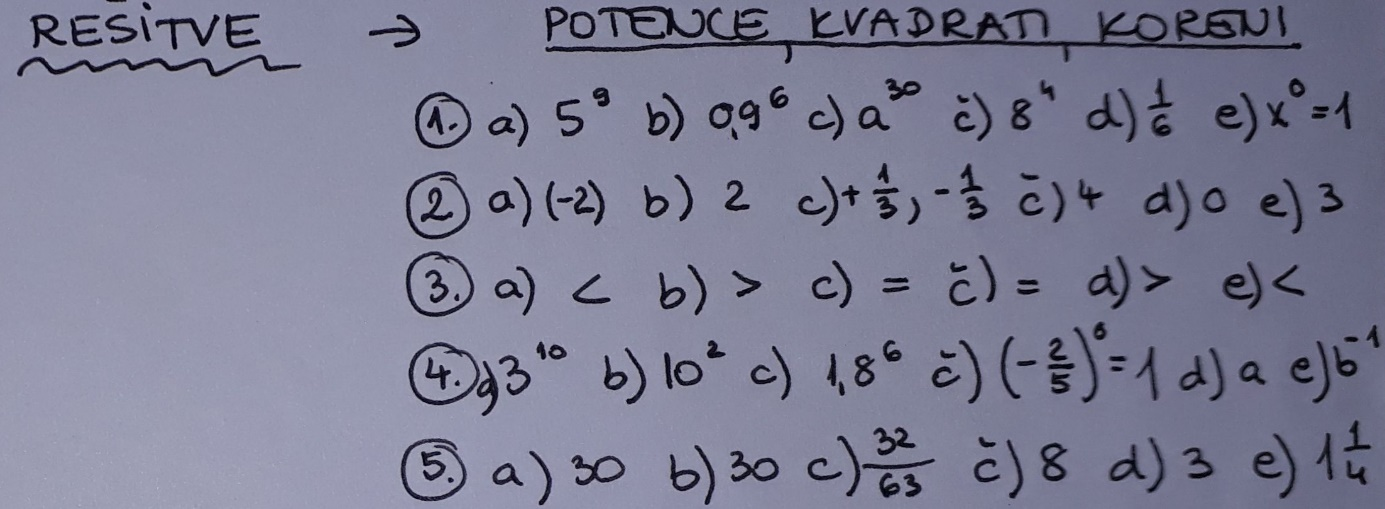 REŠITVE → POTENCE, KVADRATI, KORENI
1. a) 5⁹ b) 0,9⁶ c) a³⁰ č) 8⁴ d) 1/6 e) x⁰=1
2 a) (-2) b) 2 c) +1/3, -1/3 č) 4 d) 0 e) 3
3. a) < b) > c) = č) = d) > e) <
4. a) 3¹⁰ b) 10² c) 1,8⁶ č) (-2/5)⁰=1 d) a e) b⁻¹
5. a) 30 b) 30 c) 32/63 č) 8 d) 3 e) 1 1/4